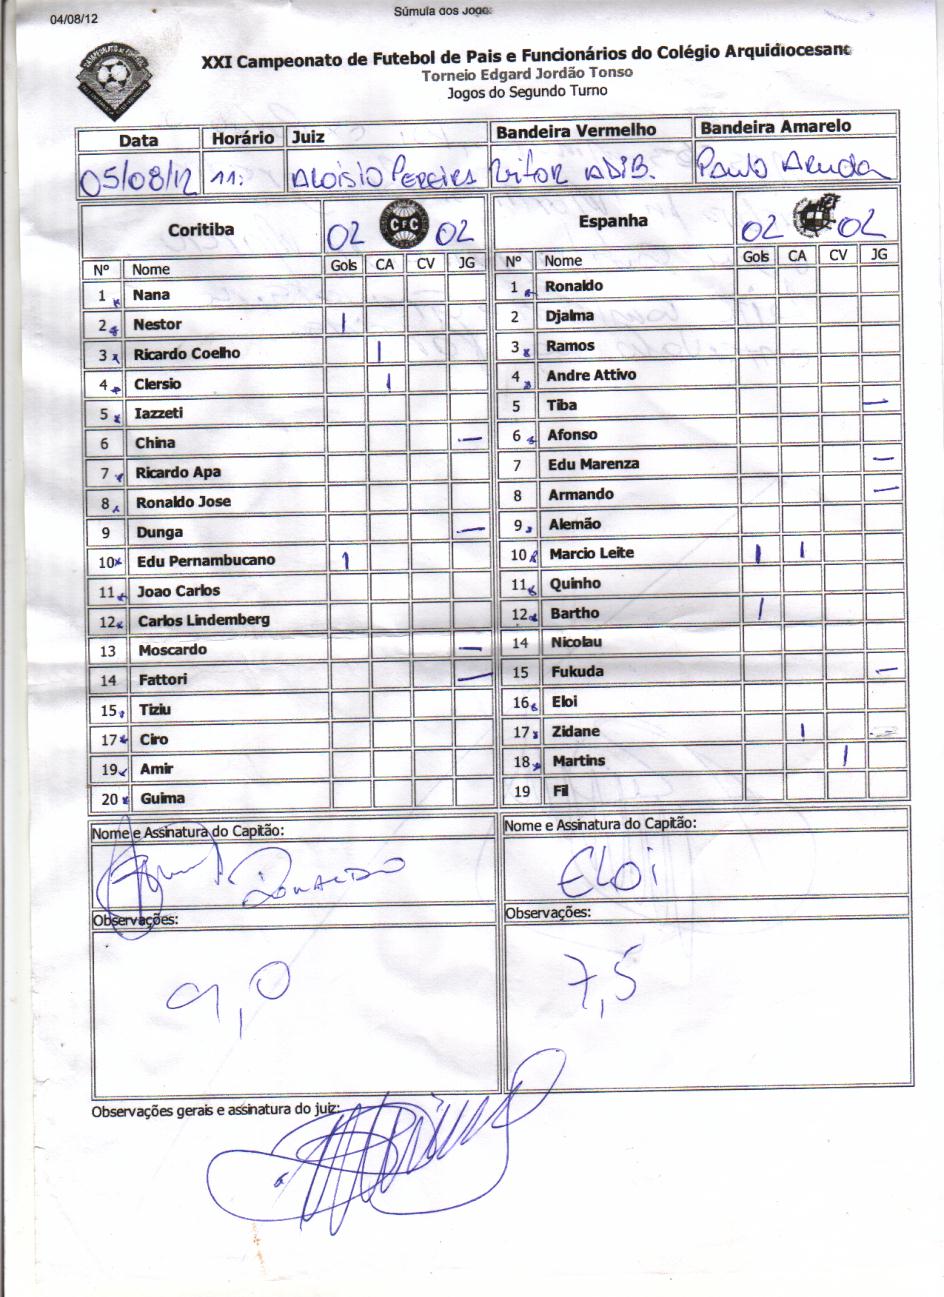 04/08/12
Súmula dos Jogos
XXI Campeonato de Futebol de Pais e Funcionários do Colégio Arquidiocesano
Torneio Edgard Jordão Tonso
Jogos do Segundo Turno
Data Horário Juiz Bandeira Vermelho Bandeira Amarelo
05/08/12 11: Aloisio Pereira Vitor Adib. Paulo Aruda
Coritiba 02 CFC 02 Espanha 02 02
Nº Nome Gols CA CV JG Nº Nome Gols CA CV JG
1 Nana 1 Ronaldo
2 Nestor | 2 Djalma
3 Ricardo Coelho | 3 Ramos
4 Clersio | 4 Andre Attivo
5 Iazzeti 5 Tiba —
6 China — 6 Afonso
7 Ricardo Apa 7 Edu Marenza —
8 Ronaldo Jose 8 Armando —
9 Dunga — 9 Alemão
10 Edu Pernambucano | 10 Marcio Leite | |
11 Joao Carlos 11 Quinho
12 Carlos Lindemberg 12 Bartho |
13 Moscardo — 14 Nicolau
14 Fattori — 15 Fukuda —
15 Tiziu 16 Eloi
17 Ciro 17 Zidane |
19 Amir 18 Martins |
20 Guima 19 Fil
Nome e Assinatura do Capitão: Nome e Assinatura do Capitão:
Ronaldo Eloi
Observações: Observações:
9,0 7,5
Observações gerais e assinatura do juiz: